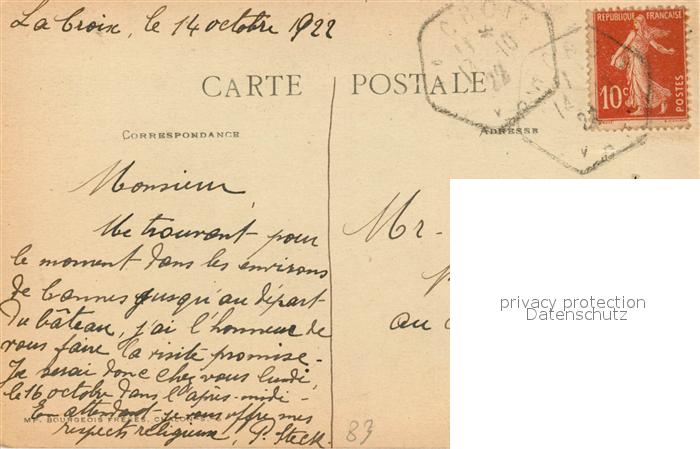 La Croix, le 14 octobre 1922
CARTE POSTALE
CORRESPONDANCE
ADRESSE
RÉPUBLIQUE FRANÇAISE
10c
POSTES
Monsieur,
Me trouvant pour
le moment dans les environs
de Cannes jusqu'au départ
du bâteau, j'ai l'honneur de
vous faire la visite promise.
Je serai donc chez vous lundi,
le 16 octobre dans l'après-midi.
En attendant je vous offre mes
respects religieux, P. Steck
MP. BOURGEOIS FRÈRES, CHALON-S-S
Mr.
au
83
privacy protection
Datenschutz